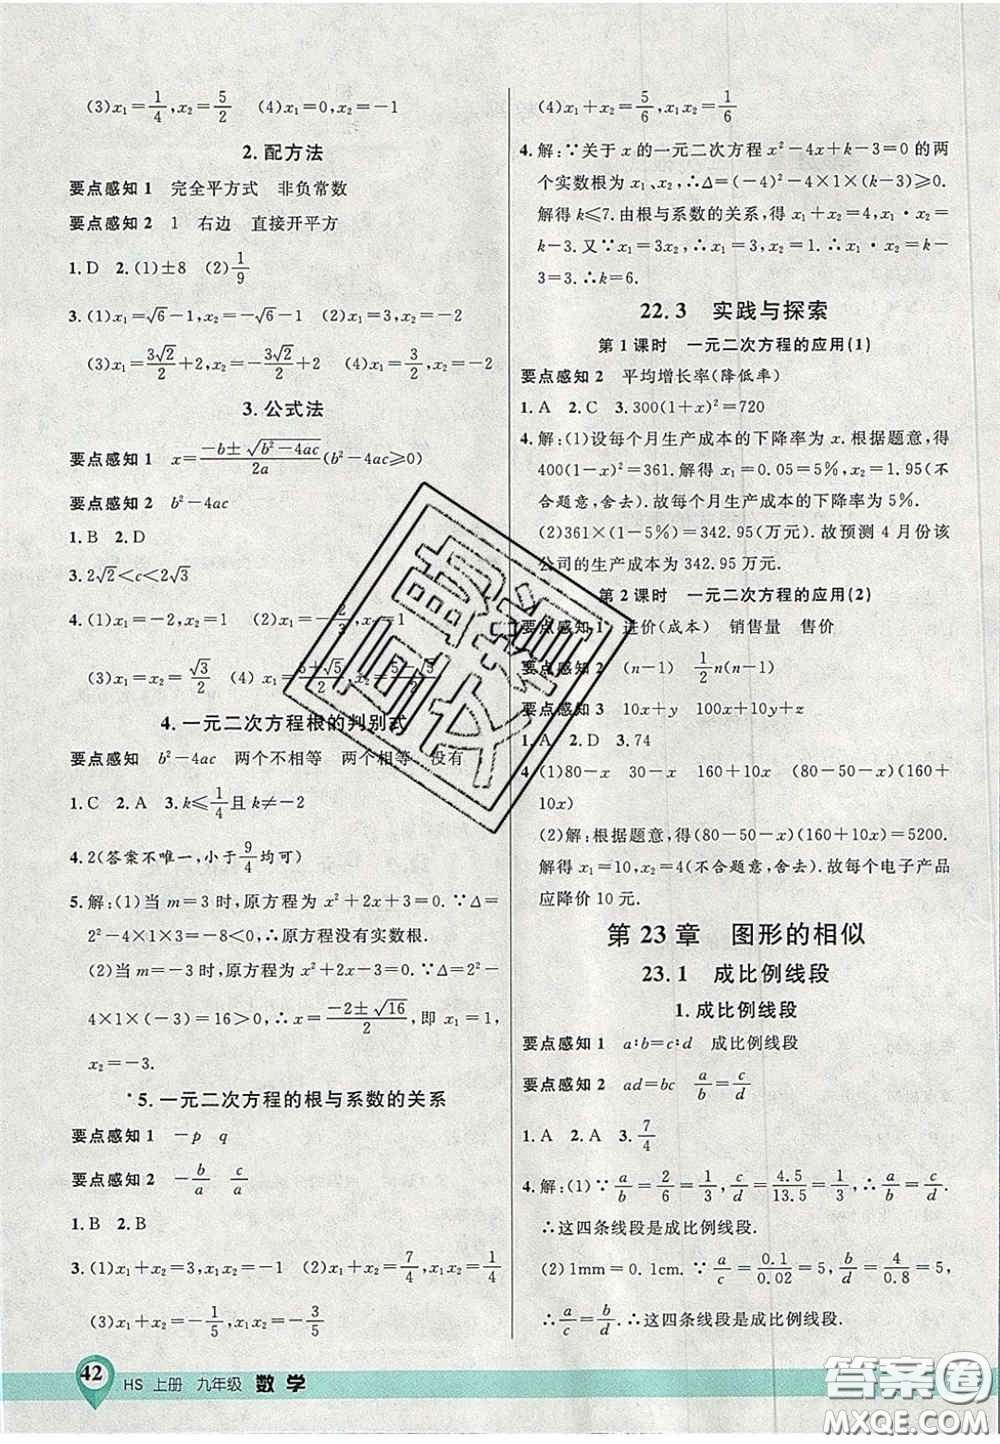 (3)x₁=1/4,x₂=5/2 (4)x₁=0,x₂=-1
2.配方法
要点感知1 完全平方式 非负常数
要点感知2 1 右边 直接开平方
1.D 2.(1)±8 (2)1/9
3.(1)x₁=√6-1,x₂=-√6-1 (2)x₁=x₂=-2
(3)x₁=3√2/2+2,x₂=-3√2/2+2
3.公式法
要点感知1 x=(-b±√(b²-4ac))/2a(b²-4ac≥0)
要点感知2 b²-4ac
1.B 2.D
3.2√2<c<2√3
4.(1)x₁=-2,x₂=1 (2)x₁=-2/3,x₂=1
(3)x₁=x₂=√3/2 (4) x₁=(5+√5)/2,x₂=(5-√5)/2
4.一元二次方程根的判别式
要点感知 b²-4ac 两个不相等 两个相等 没有
1.C 2.A 3.k≤1/4且k≠-2
4.2(答案不唯一,小于9/4均可)
5.解:(1)当m=3时,原方程为x²+2x+3=0.∵Δ=
2²-4×1×3=-8<0,∴原方程没有实数根.
(2)当m=-3时,原方程为x²+2x-3=0.∵Δ=2²-
4×1×(-3)=16>0,∴x=(-2±√16)/2,即x₁=1,
x₂=-3.
5.一元二次方程的根与系数的关系
要点感知1 -p q
要点感知2 -b/a c/a
1.B 2.B
3.(1)x₁+x₂=3,x₁x₂=-1 (2)x₁+x₂=7/4,x₁x₂=1/4
(3)x₁+x₂=-1/5,x₁x₂=-3/5
(4)x₁+x₂=5/6,x₁x₂=1/6
4.解:∵关于x的一元二次方程x²-4x+k-3=0的两
个实数根为x₁、x₂,∴Δ=(-4)²-4×1×(k-3)≥0.
解得k≤7.由根与系数的关系,得x₁+x₂=4,x₁·x₂=
k-3.又∵x₁=3x₂,∴x₁=3,x₂=1.∴x₁·x₂=3=
k-3.∴k=6.
22.3 实践与探索
第1课时 一元二次方程的应用(1)
要点感知2 平均增长率(降低率)
1.A 2.C 3.300(1+x)²=720
4.解:(1)设每个月生产成本的下降率为x.根据题意,得
400(1-x)²=361.解得x₁=0.05=5%,x₂=1.95(不
合题意,舍去).故每个月生产成本的下降率为5%.
(2)361×(1-5%)=342.95(万元).故预测4月份该
公司的生产成本为342.95万元.
第2课时 一元二次方程的应用(2)
要点感知1 进价(成本) 销售量 售价
要点感知2 (n-1) 1/2n(n-1)
要点感知3 10x+y 100x+10y+z
1.A 2.D 3.74
4.(1)80-x 30-x 160+10x (80-50-x)(160+
10x)
(2)解:根据题意,得(80-50-x)(160+10x)=5200.
解得x₁=10,x₂=4(不合题意,舍去).故每个电子产品
应降价10元.
第23章 图形的相似
23.1 成比例线段
1.成比例线段
要点感知1 a∶b=c∶d 成比例线段
要点感知2 ad=bc a/b=c/d
1.A 2.A 3.7/4
4.解:(1)∵a/b=2/6=1/3,c/d=4.5/13.5=1/3,∴a/b=c/d.
∴这四条线段是成比例线段.
(2)1mm=0.1cm.∵a/c=0.1/0.02=5,b/d=4/0.8=5,
∴a/c=b/d.∴这四条线段是成比例线段.
42 HS 上册 九年级 数学
百聊文糧
答案圈
MXQE.COM